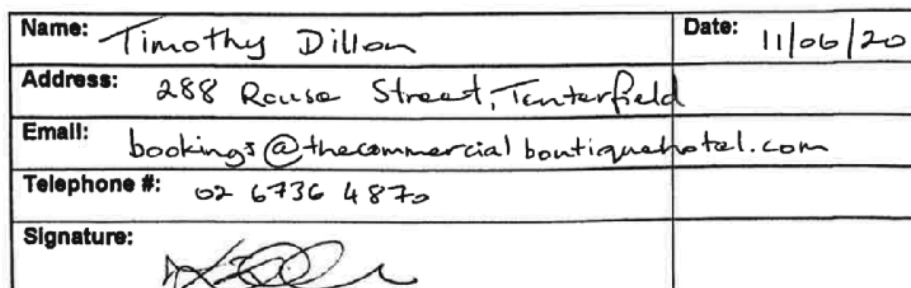 Name: Timothy Dillon Date: 11/06/20
Address: 288 Rouse Street, Tenterfield
Email: bookings@thecommercialboutiquehotel.com
Telephone #: 02 6736 4870
Signature: